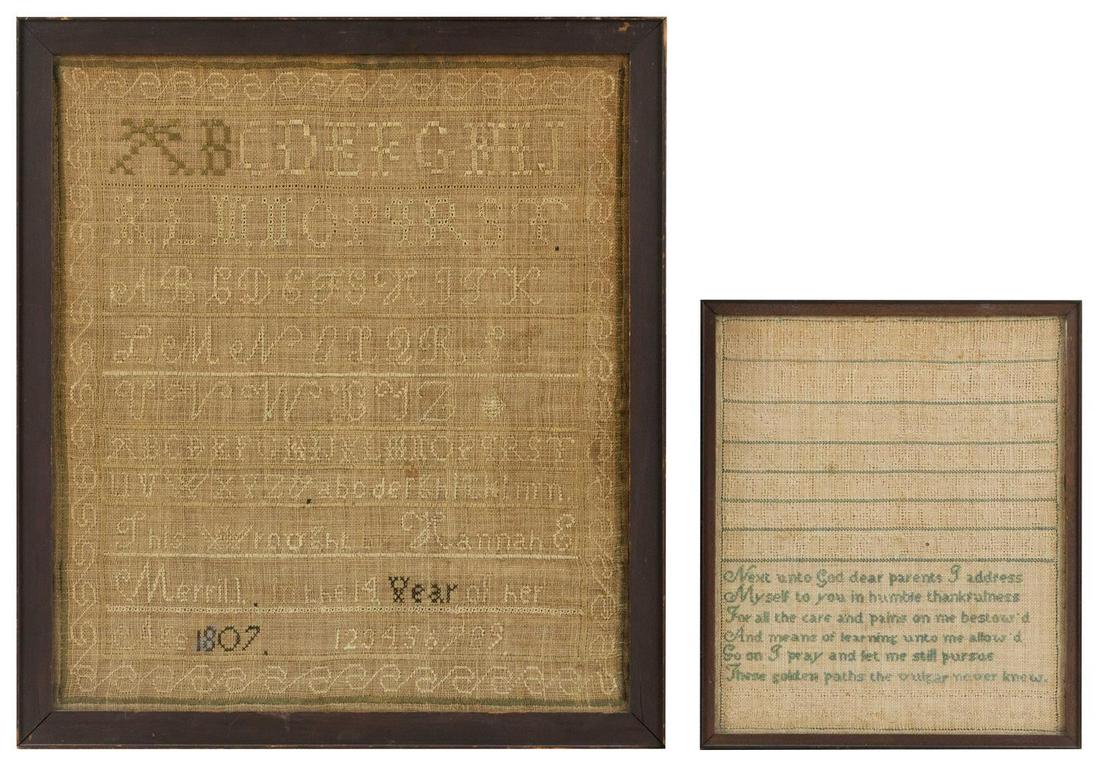 A B C D E F G H I J
K L M N O P Q R S T
A B C D E F G H I J K
L M N O P Q R S T
U V W X Y Z
A B C D E F G H I J K L M N O P Q R S T
U V W X Y Z
This Wrought Hannah E
Merrill. the 14 Year of her
Age 1807. 123456789
Next unto God dear parents I address
Myself to you in humble thankfulness
For all the care and pains on me bestow'd
And means of learning unto me allow'd
Go on I pray and let me still pursue
These golden paths the vulgar never knew.